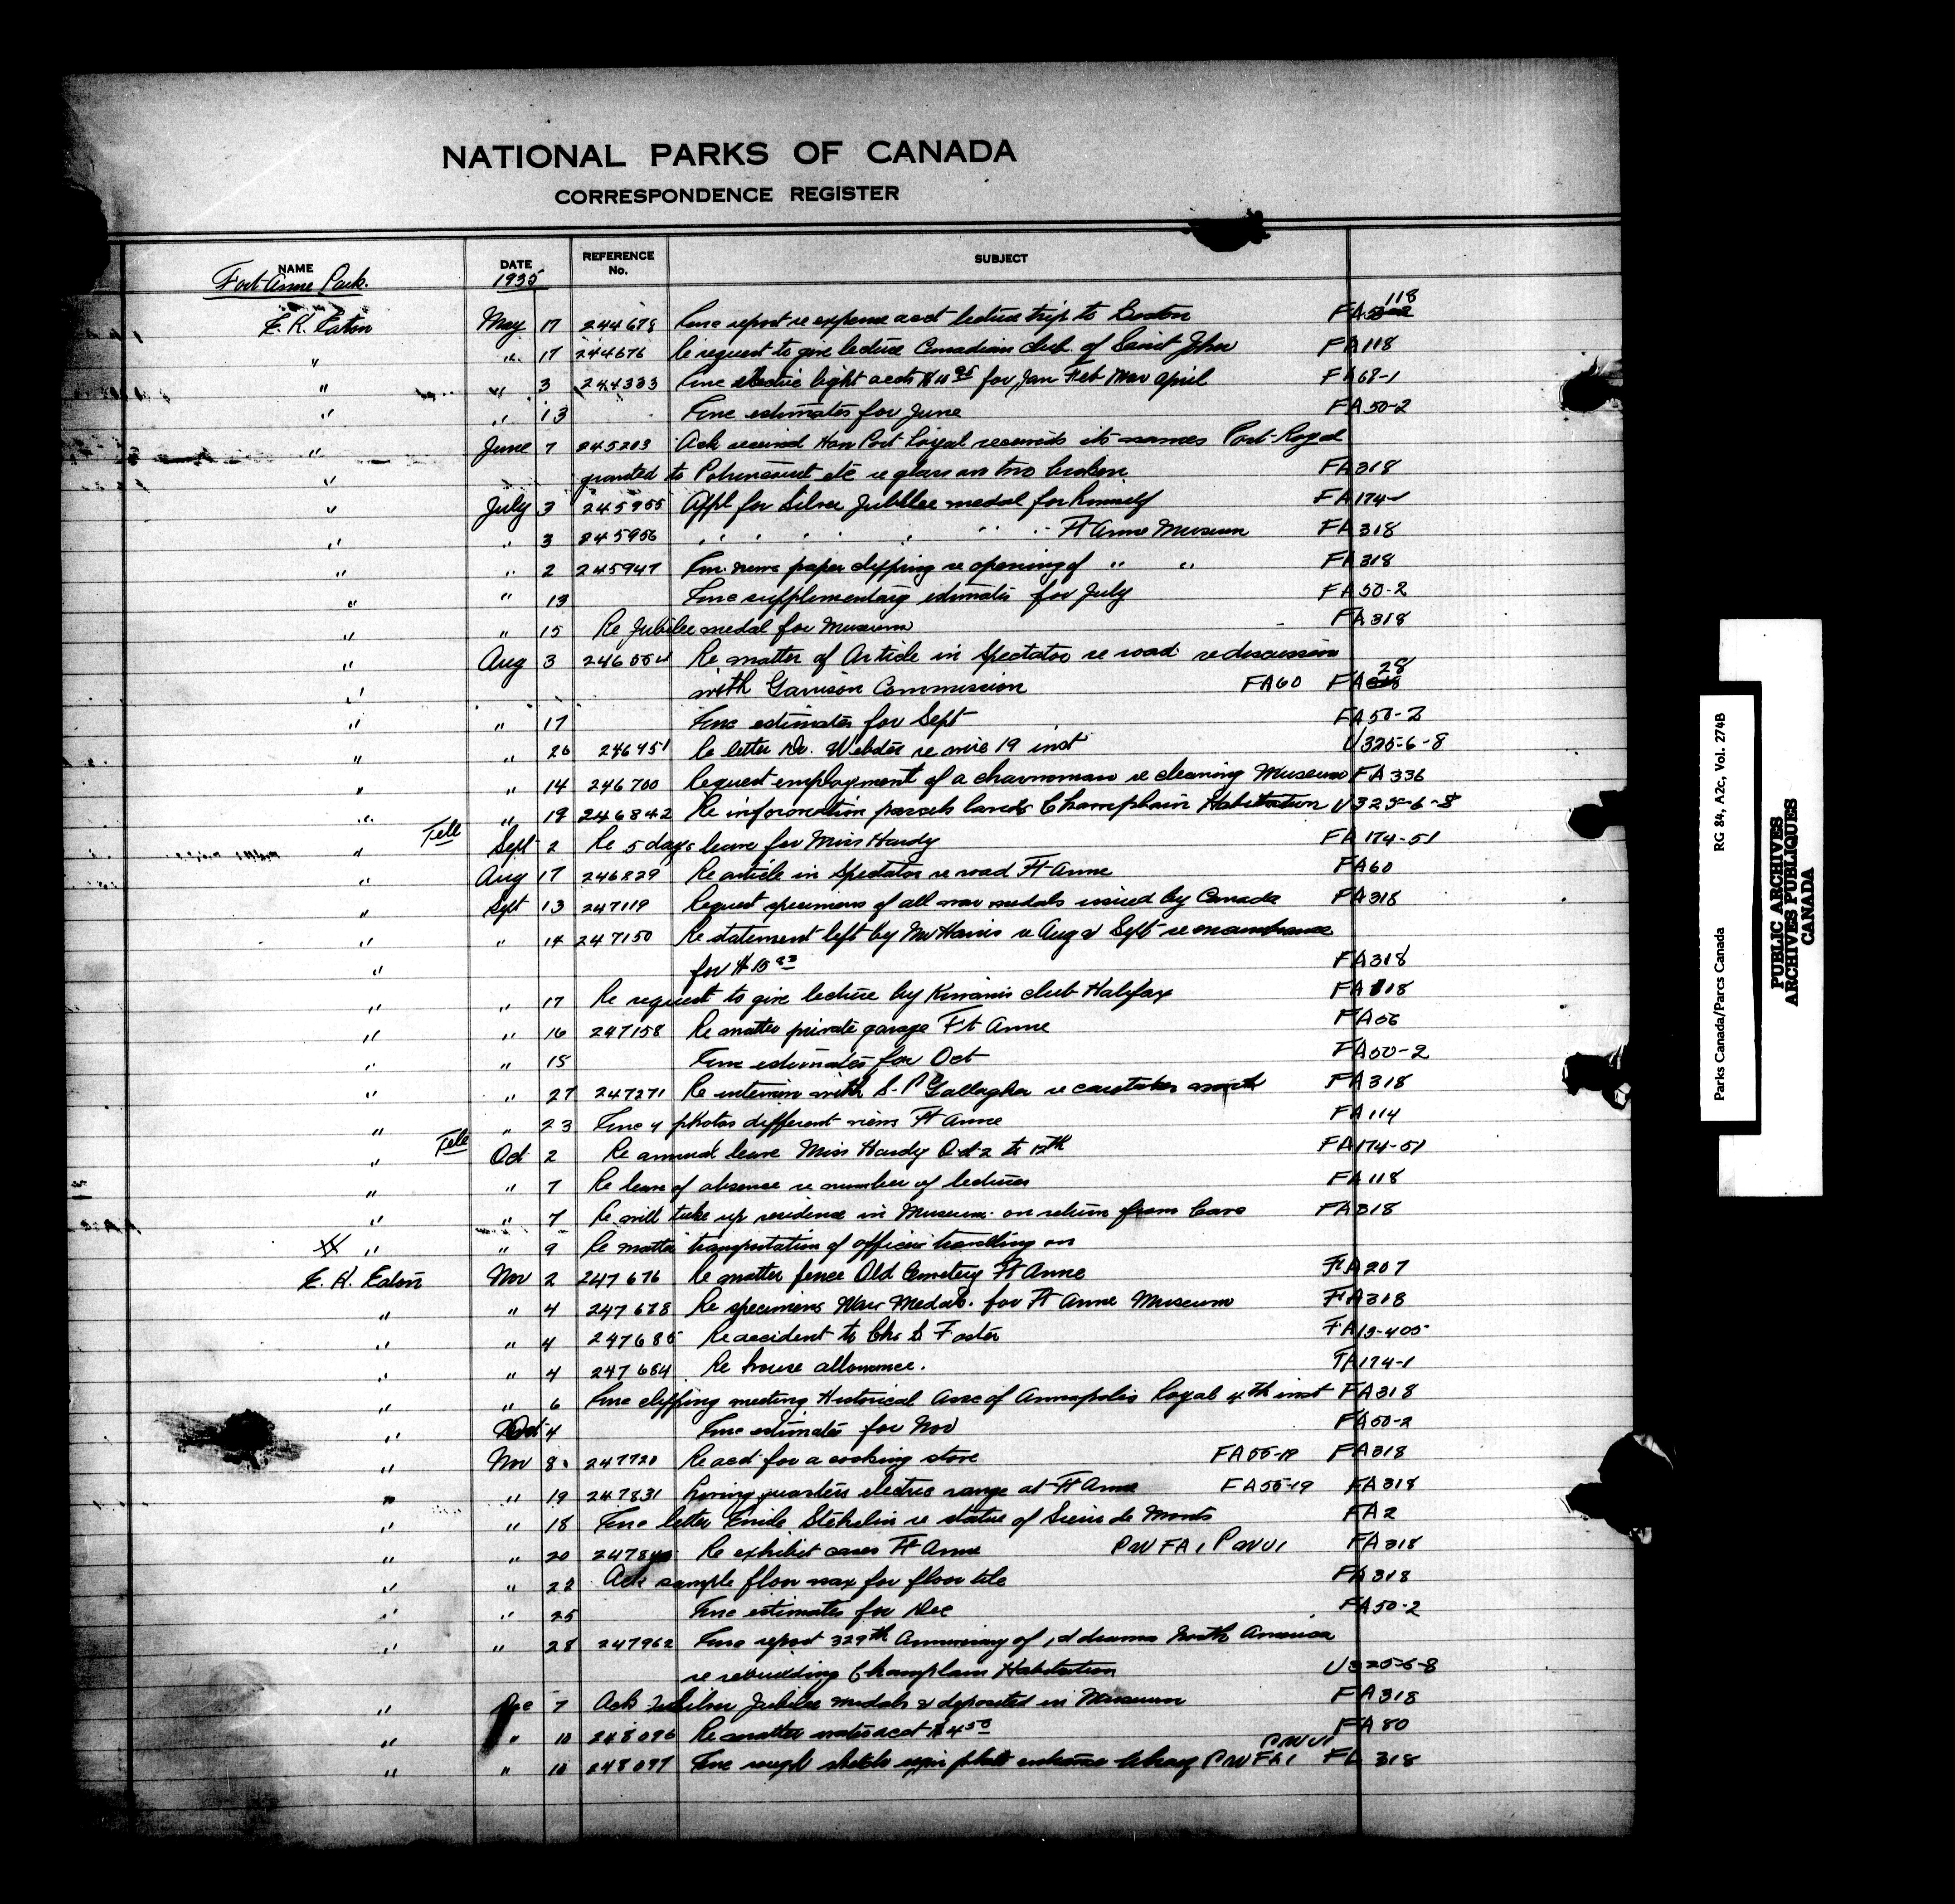 NATIONAL PARKS OF CANADA
CORRESPONDENCE REGISTER
NAME DATE REFERENCE No. SUBJECT
Fort Anne Park. 1935
E. K. Eaton May 17 244678 Enc report re expense acct lecture trip to Boston FA 118
" " 17 244676 Re request to give lecture Canadian club of Saint John FA 118
" " 3 244333 Enc electric light accts for Jan Feb Mar April FA 68-1
" " 13 Enc estimates for June FA 50-2
" June 7 245203 Ack received How Port Royal records its names Port-Royal
" granted to etc re glass broken FA 318
" July 3 245955 Appl for Silver Jubilee medal for himself FA 174-1
" " 3 245956 " " " " " " " Ft Anne Museum FA 318
" " 2 245947 Enc news paper clipping re opening of " " FA 318
" " 13 Enc supplementary estimates for July FA 50-2
" " 15 Re Jubilee medal for Museum FA 318
" Aug 3 Re matter of Article in Spectator re road re discussion
" with Garrison Commission FA 60 FA 28
" " 17 Enc estimates for Sept FA 50-2
" " 20 246951 Re letter Dr. Webster re wire 19 inst U 325-6-8
" " 14 246700 Request employment of a charwoman re cleaning Museum FA 336
" " 19 246842 Re information parcels lands Champlain Habitation U 325-6-8
" Tele Sept 2 Re 5 days leave for Miss Hardy FA 174-51
" Aug 17 246829 Re article in Spectator re road Ft Anne FA 60
" Sept 13 247119 Request specimens of all war medals issued by Canada FA 318
" " 14 247150 Re statement left by Mr Harris re Aug & Sept re
" for FA 318
" " 17 Re request to give lecture by Kiwanis club Halifax FA 118
" " 16 247158 Re matter private garage Ft Anne FA 56
" " 15 Enc estimates for Oct FA 50-2
" " 27 247271 Re interview with S. P Gallagher re caretaker work FA 318
" " 23 Enc 4 photos different views Ft Anne FA 114
" Tele Oct 2 Re annual leave Miss Hardy Oct 2 to 12th FA 174-51
" " 7 Re leave of absence re number of lectures FA 118
" " 7 Re will take up residence in Museum on return from FA 318
" " 9 Re matter transportation of officers travelling on
E. K. Eaton Nov 2 247676 Re matter fence Old Cemetery Ft Anne FA 207
" " 4 247678 Re specimens War Medals. for Ft Anne Museum FA 318
" " 4 247685 Re accident to Chs S Foster FA 13-405
" " 4 247684 Re house allowance. FA 174-1
" " 6 Enc clipping meeting Historical Assc of Annapolis Royal 4th inst FA 318
" Oct 4 Enc estimates for Nov FA 50-2
" Nov 8 247720 Re acct for a cooking stove FA 55-19 FA 318
" " 19 247831 Living quarters electric range at Ft Anne FA 55-19 FA 318
" " 18 Enc letter Emile Stehelin re statue of Sieur de Monts FA 2
" " 20 Re exhibit cases Ft Anne PWFA1 PWU1 FA 318
" " 22 Ack sample floor wax for floor tile FA 318
" " 25 Enc estimates for Dec FA 50-2
" " 28 247962 Enc report 329th Anniversary of 1st drama North America
re rebuilding Champlain Habitation U 325-6-8
" Dec 7 Ack 2 Silver Jubilee medals & deposited in Museum FA 318
" " 10 248096 Re matter water acct $4.50 FA 80
PWU1
" " 10 248097 Enc rough sketch entrance library PWFA1 FA 318
Parks Canada/Parcs Canada RG 84, A2c, Vol. 274B
PUBLIC ARCHIVES
ARCHIVES PUBLIQUES
CANADA